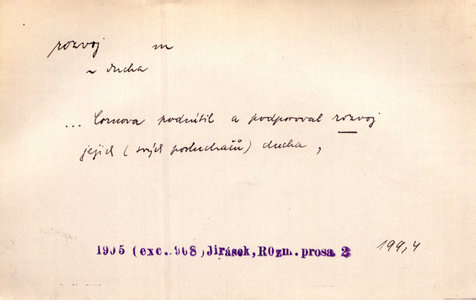 rozvoj m
~ ducha
... Cornova podnítil a podporoval rozvoj
jejich (svých posluchačů) ducha,
1905 (exc. 968) Jirásek, ROzm. prosa 2 199,4